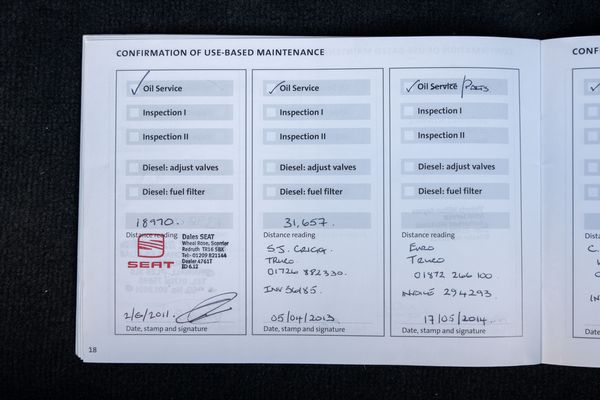 CONFIRMATION OF USE-BASED MAINTENANCE
Oil Service
Inspection I
Inspection II
Diesel: adjust valves
Diesel: fuel filter
18970.
Distance reading
SEAT
Dales SEAT
Wheel Rose, Scorrier
Redruth TR16 5BX
Tel:-01209 821144
Dealer 4761T
ED 6.12
2/6/2011.
Date, stamp and signature
Oil Service
Inspection I
Inspection II
Diesel: adjust valves
Diesel: fuel filter
31,657.
Distance reading
TRURO
01726 882330.
INV 36185.
05/04/2013
Date, stamp and signature
Oil Service / PADS
Inspection I
Inspection II
Diesel: adjust valves
Diesel: fuel filter
Distance reading
EURO
TRURO
01872 266 100.
INVOICE 294293.
17/05/2014.
Date, stamp and signature
18
CONF